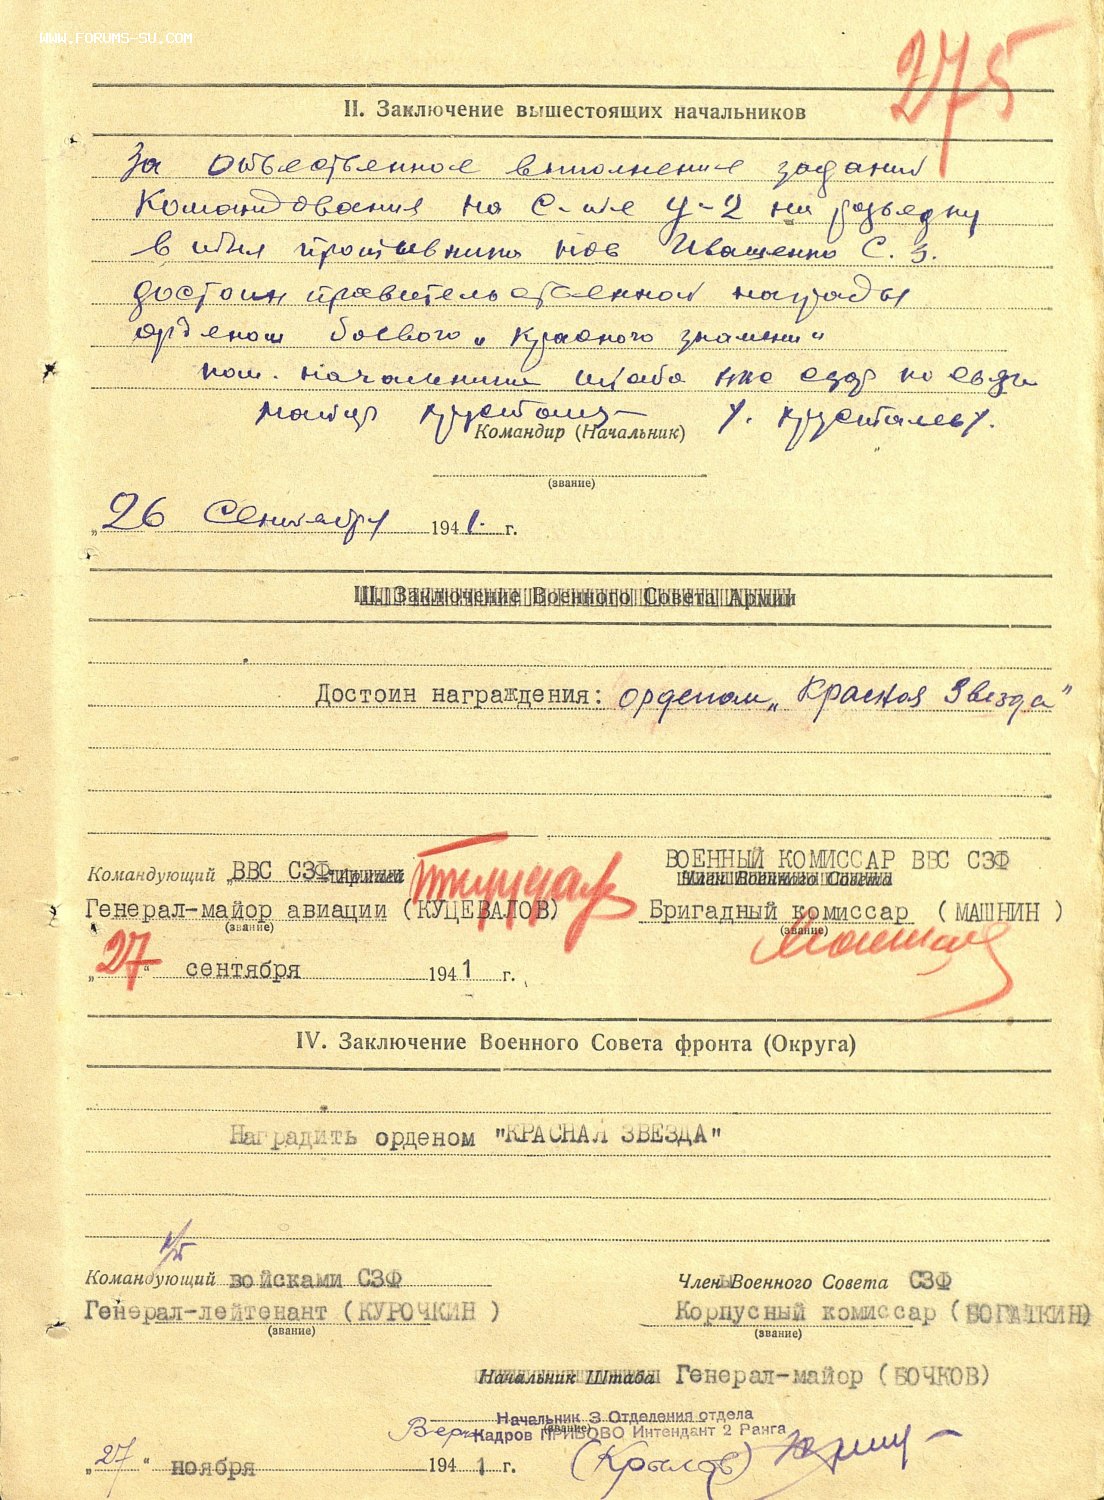 WWW.FORUMS-SU.COM
275
II. Заключение вышестоящих начальников
За ответственное выполнение заданий
Командования на С-те У-2 на разведку
в тыл противника тов Иващенко С. З.
достоин правительственной награды
орденом боевого „Красного знамени"
пом. начальника штаба
майор
Командир (Начальник)
(звание)
„26 Сентября 1941. г.
III. Заключение Военного Совета Армии
Достоин награждения: орденом „Красная Звезда"
Командующий ВВС СЗФ Армией
ВОЕННЫЙ КОМИССАР ВВС СЗФ
Член Военного Совета
Генерал-майор авиации (КУЦЕВАЛОВ)
Бригадный комиссар (МАШНИН)
(звание)
(звание)
„27" сентября 1941 г.
IV. Заключение Военного Совета фронта (Округа)
Наградить орденом "КРАСНАЯ ЗВЕЗДА"
Командующий войсками СЗФ
Члены Военного Совета СЗФ
Генерал-лейтенант (КУРОЧКИН)
Корпусный комиссар (БОГАТКИН)
(звание)
(звание)
Начальник Штаба Генерал-майор (БОЧКОВ)
Начальник 3 Отделения отдела
(звание)
Верно Кадров ПРИБОВО Интендант 2 Ранга
(Крылов)
„27" ноября 1941 г.